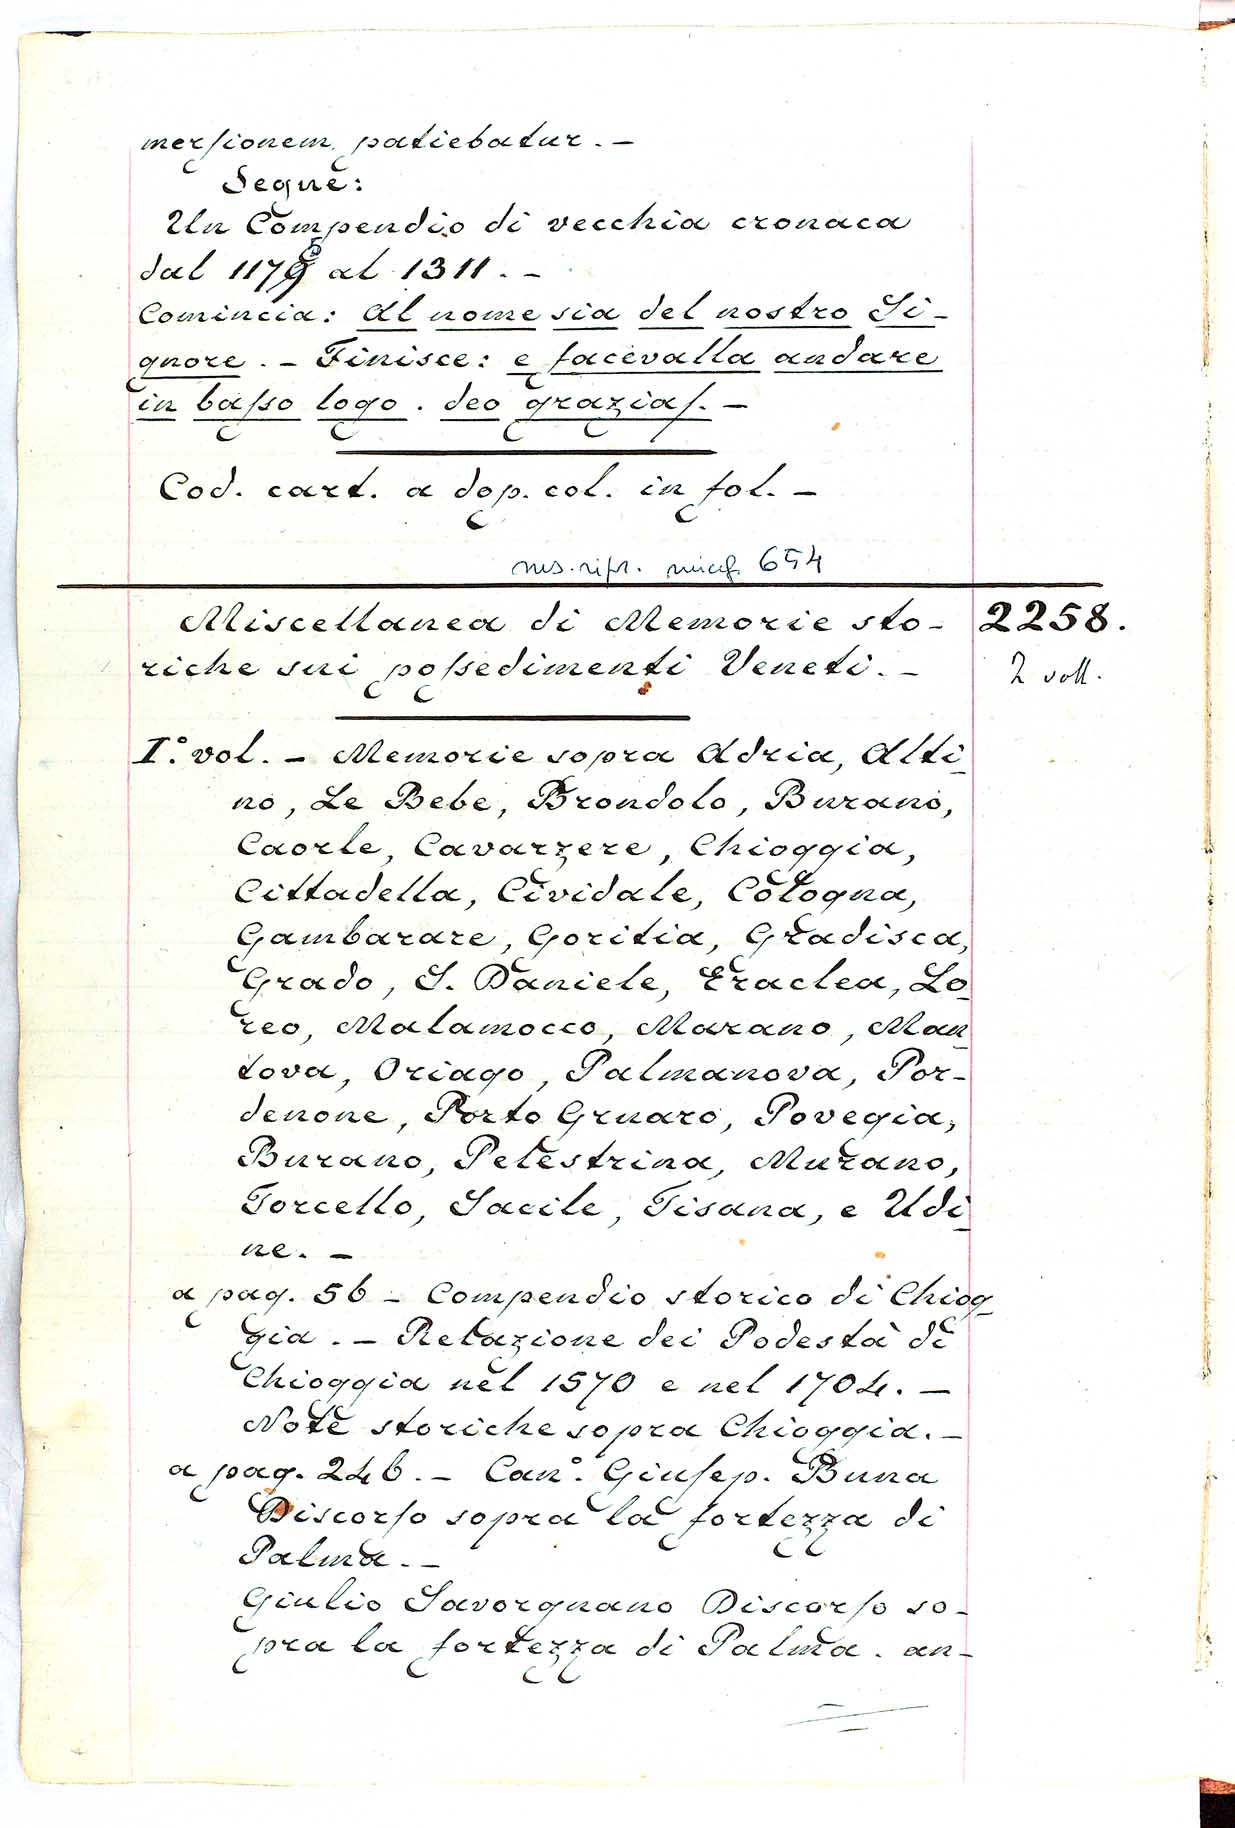 mersionem patiebatur. –
Segue:
Un Compendio di vecchia cronaca
dal 1179 al 1311. –
Comincia: Al nome sia del nostro Si-
gnore. – Finisce: e facevalla andare
in baſso logo. deo graziaſ. –
Cod. cart. a dop. col. in fol. –
ms. ripr. microf. 654
Miscellanea di Memorie sto-
2258.
riche sui poſsedimenti Veneti. –
2 voll.
I.° vol. – Memorie sopra Adria, Alti-
no, Le Bebe, Brondolo, Burano,
Caorle, Cavarzere, Chioggia,
Cittadella, Cividale, Cologna,
Gambarare, Goritia, Gradisca,
Grado, S. Daniele, Eraclea, Lo-
reo, Malamocco, Marano, Man-
tova, Oriago, Palmanova, Por-
denone, Porto Gruaro, Povegia,
Burano, Pelestrina, Murano,
Torcello, Sacile, Tisana, e Udi-
ne. –
a pag. 56 – Compendio storico di Chiog-
gia. – Relazione dei Podestà di
Chioggia nel 1570 e nel 1704. –
Note storiche sopra Chioggia. –
a pag. 246. – Can°. Giuſep. Buna
Discorſo sopra la fortezza di
Palma. –
Giulio Savorgnano Discorſo so-
pra la fortezza di Palma. an-